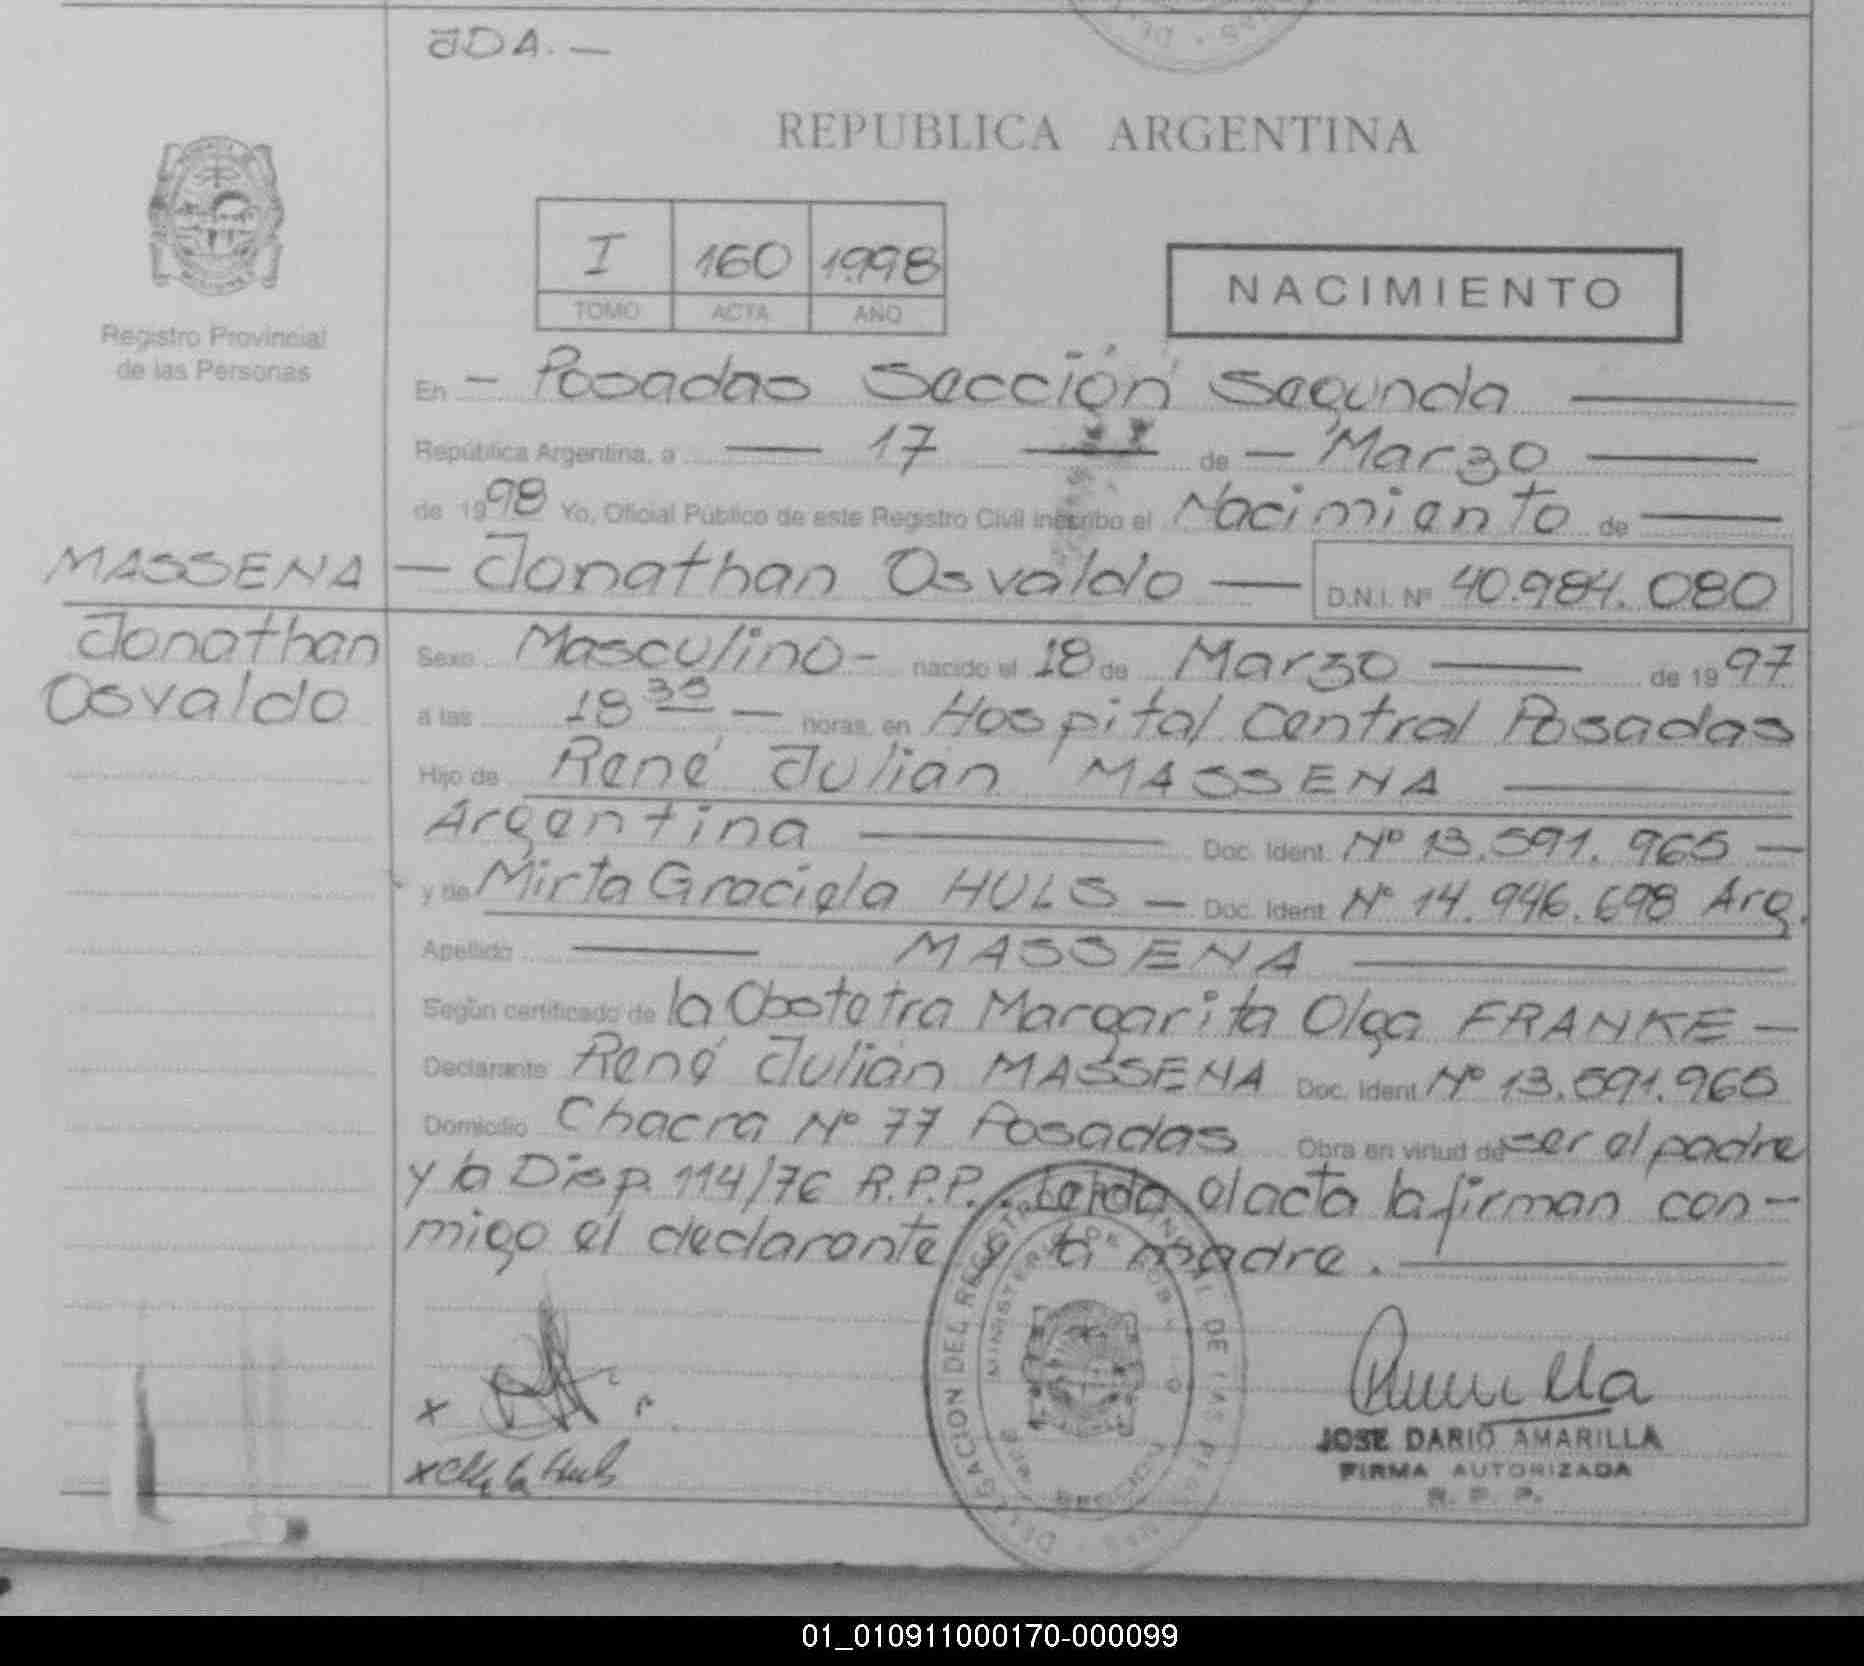 ƏDA. —
REPUBLICA ARGENTINA
I 160 1998
TOMO ACTA AÑO
NACIMIENTO
Registro Provincial
de las Personas
En — Posadas Sección Segunda —
República Argentina, a — 17 — de — Marzo —
de 1998 Yo, Oficial Público de este Registro Civil inscribo el Nacimiento de —
MASSENA — Jonathan Osvaldo — D.N.I. Nº 40.984.080
Jonathan
Osvaldo
Sexo Masculino - nacido el 18 de Marzo — de 1997
a las 18 30 — horas, en Hospital Central Posadas
Hijo de René Julián MASSENA —
Argentina — Doc. Ident. Nº 13.591.965 —
y de Mirta Graciela HULS — Doc. Ident. Nº 14.946.698 Arg.
Apellido — MASSENA —
Según certificado de la Obstetra Margarita Olga FRANKE —
Declarante René Julián MASSENA Doc. Ident. Nº 13.591.965
Domicilio Chacra Nº 77 Posadas Obra en virtud de ser el padre
y la Disp. 114/76 R.P.P. . Leida el acta la firman con-
migo el declarante y la madre. —
DELEGACION DEL REGISTRO PROVINCIAL DE LAS PERSONAS
MINISTERIO DE GOBIERNO
x
x Huls
JOSE DARIO AMARILLA
FIRMA AUTORIZADA
R. P. P.
01_010911000170-000099